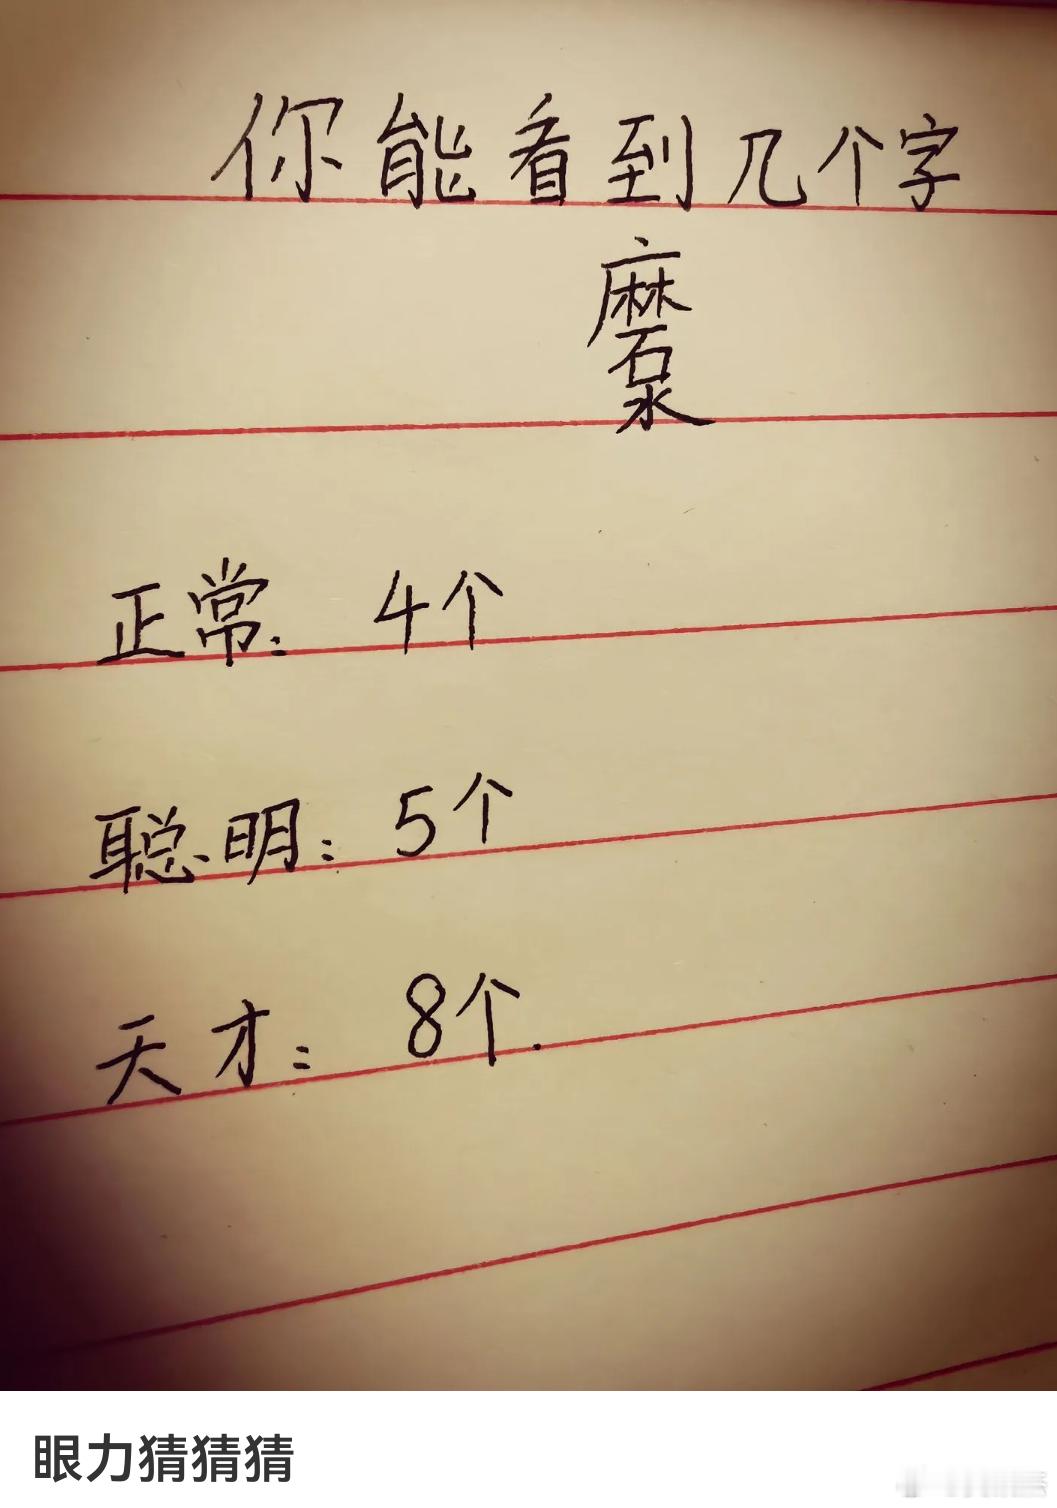 你能看到几个字
磨
水
正常: 4个
聪明: 5个
天才: 8个.
眼力猜猜猜